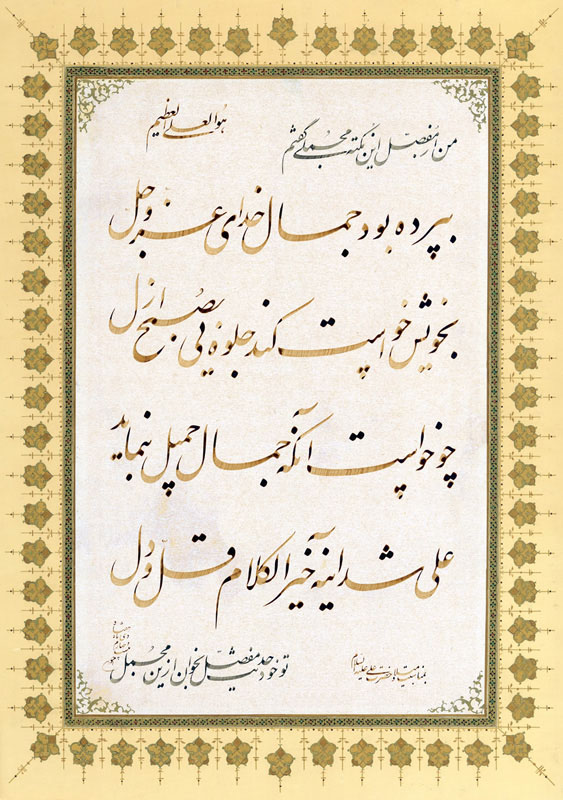 هو العلی العظیم
من از مفصل این نکته مجملی گفتم
به پرده بود جمال خدای عز و جل
بخویش خواست کند جلوه‌یی بصبح ازل
چو خواست آنکه جمال جمیل بنماید
علی شد اینه خیر الکلام قل و دل
تو خود حدیث مفصل بخوان ازین مجمل
بمناسبت میلاد حضرت علی علیه السلام